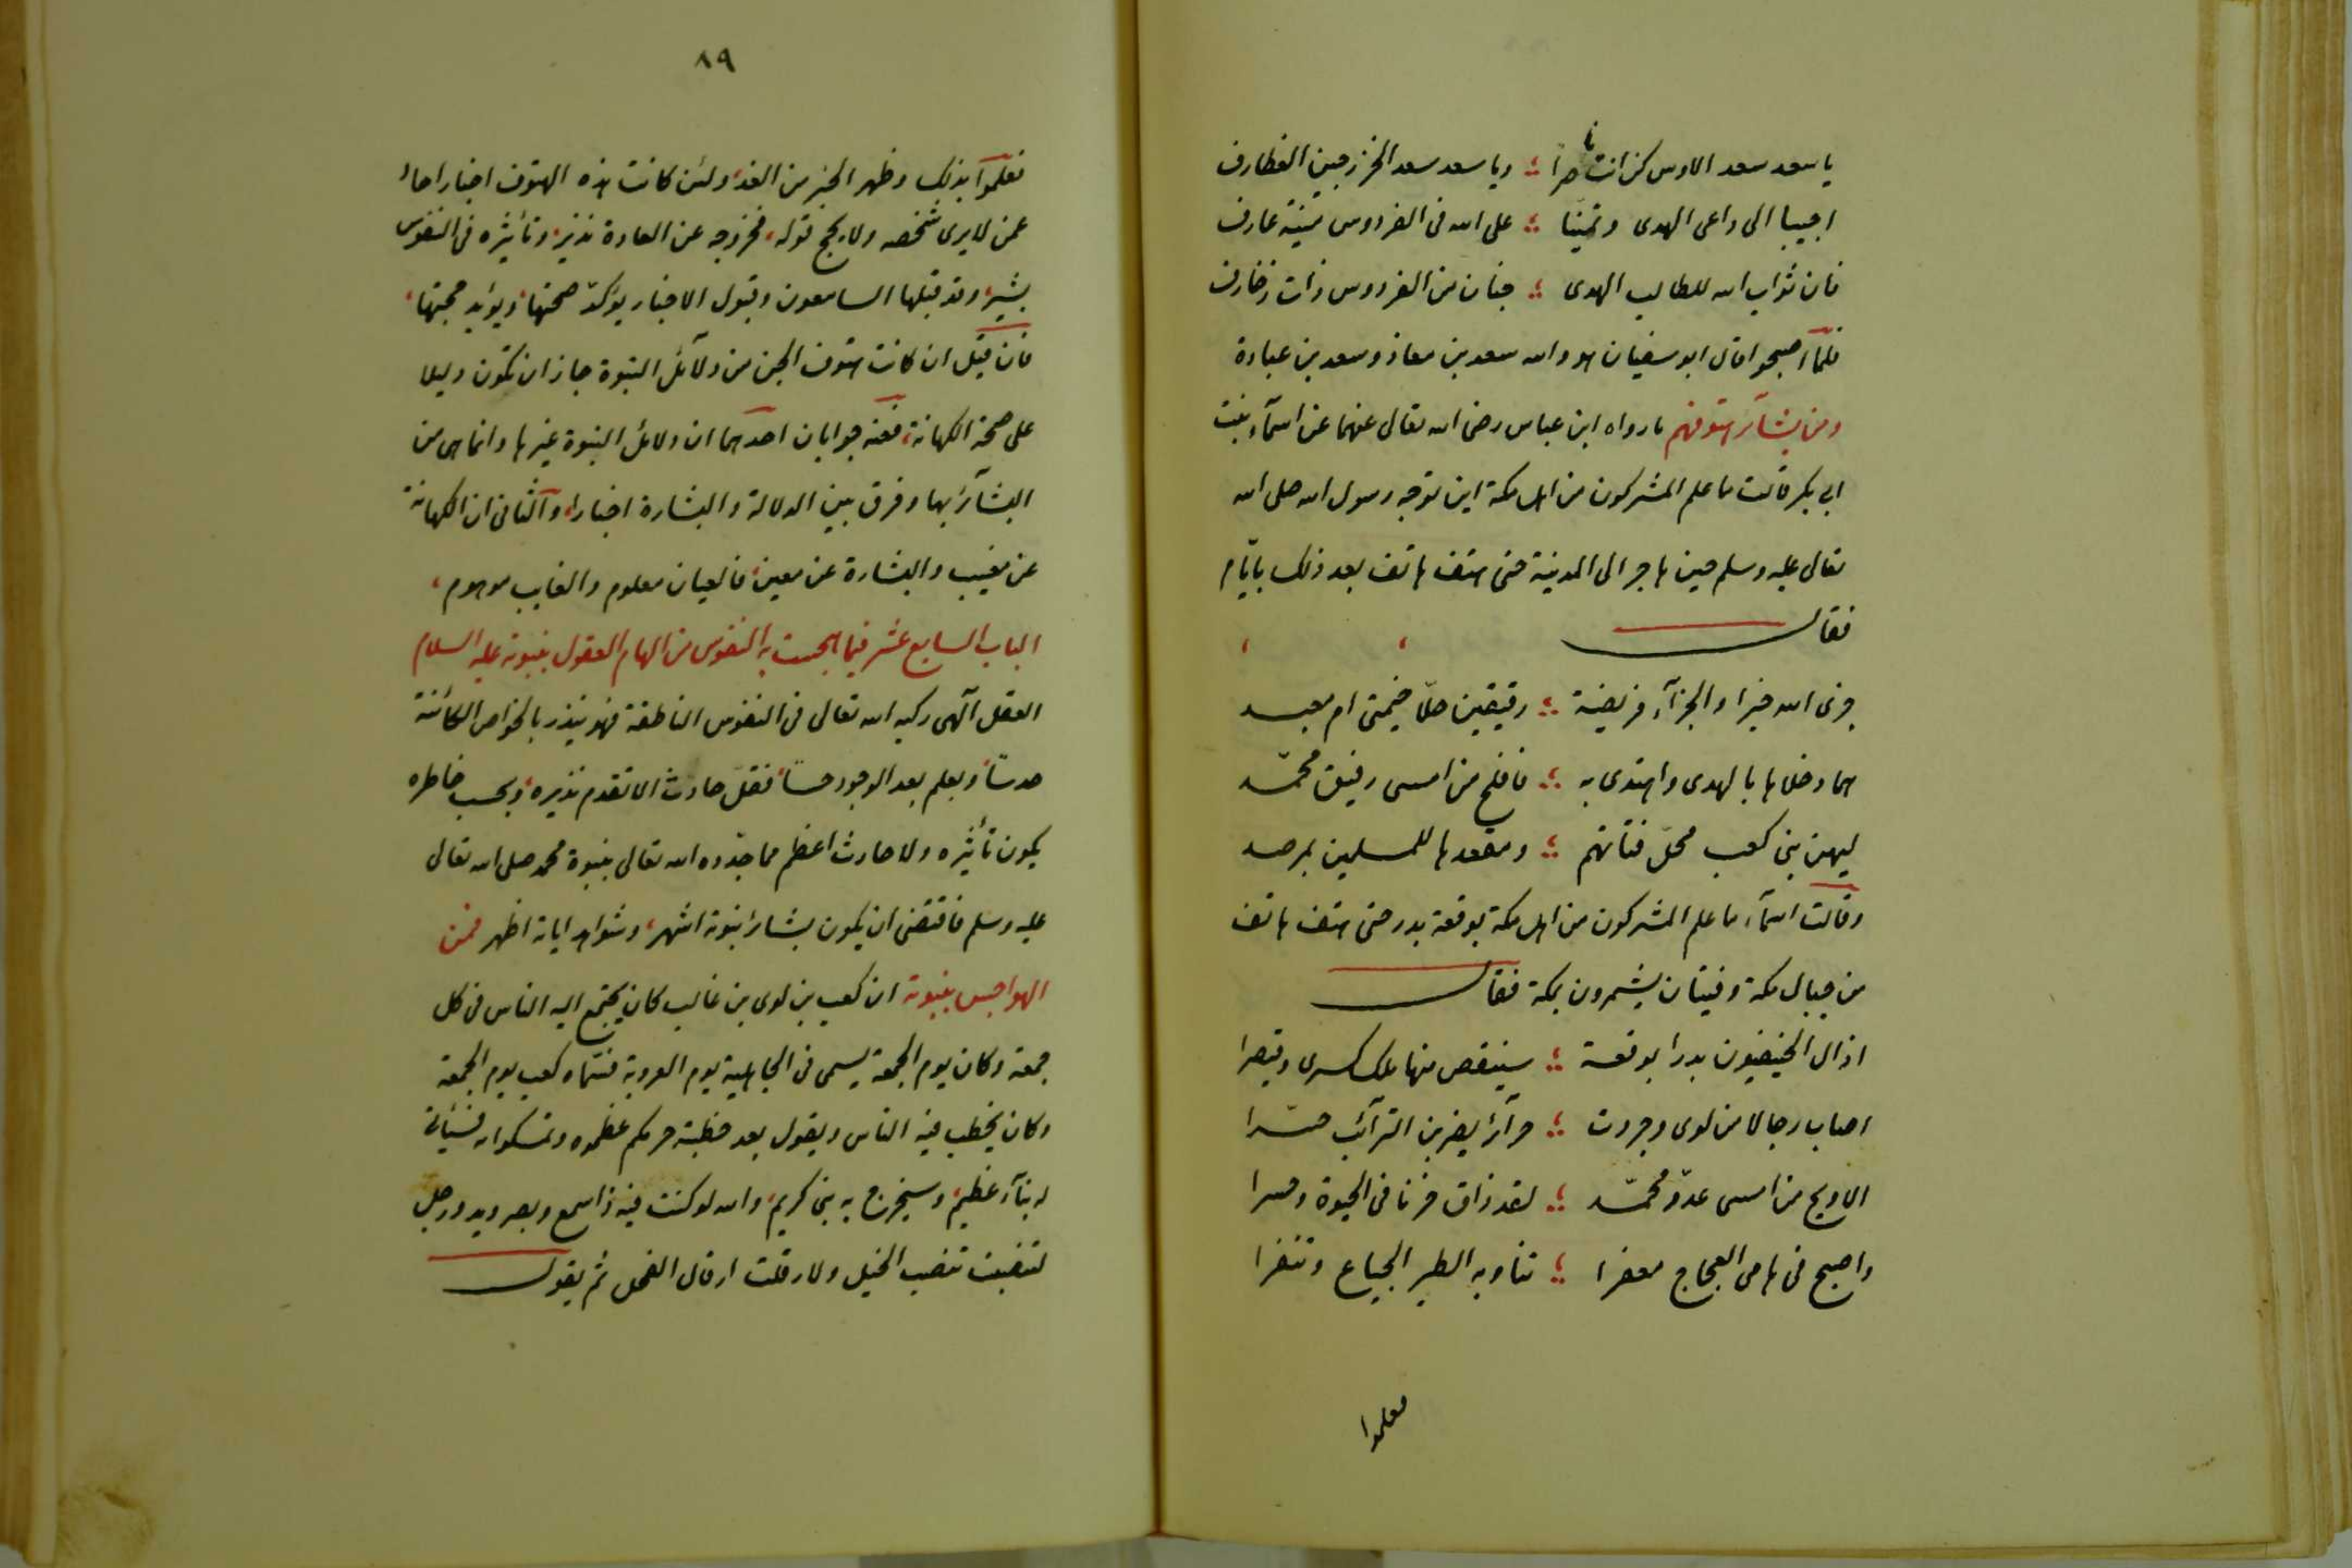 يا سعد سعد الاوس كن انت ناصرا ؛ ويا سعد سعد الخزرجين الغطارف
اجيبا الى داعى الهدى وتمنّيا ؛ على الله فى الفردوس منية عارف
فان ثواب الله للطالب الهدى ؛ جنان من الفردوس ذات زخارف
فلمّا اصبحوا قال ابو سفيان هو والله سعد بن معاذ وسعد بن عبادة
ومن بشآئر هتوفهم ما رواه ابن عباس رضى الله تعالى عنهما عن اسمآء بنت
ابى بكر قالت ما علم المشركون من اهل مكة اين توجه رسول الله صلى الله
تعالى عليه وسلم حين هاجر الى المدينة حتى هتف هاتف بعد ذلك بايّام
فقال
جزى الله خيرا والجزآء فريضة ؛ رفيقين حلّا خيمتى ام معبد
هما دخلاها بالهدى واهتدى به ؛ فافلح من امسى رفيق محمّد
ليهن بنى كعب محلّ فتاتهم ؛ ومقعدها للمسلمين بمرصد
وقالت اسمآء ما علم المشركون من اهل مكة بوقعة بدر حتى هتف هاتف
من جبال مكة وفتيان يشمرون بمكة فقال
ازال الحنيفيون بدرا بوقعة ؛ سينقص منها ملك كسرى وقيصرا
اصاب رجالا من لوى وجردت ؛ حرآئر يضربن الترآئب حسّرا
الا ويح من امسى عدوّ محمّد ؛ لقد ذاق حزنا فى الحيوة وحسرا
واصبح فى هامى العجاج معفرا ؛ تناوبه الطير الجياع وتنقرا
فعلموا
٨٩
فعلموآ بذلك وظهر الخبر من الغد، ولئن كانت هذه الهتوف اخبار احاد
عمن لا يرى شخصه ولا يحج قوله، فخروجه عن العادة نذير، وتأثيره فى النفوس
بشير، وقد قبلها السامعون وقبول الاخبار يؤكدّ صحتها، ويؤيد حجتها،
فان قيل ان كانت هتوف الجن من دلآئل النبوة جاز ان تكون دليلا
على صحة الكهانة، فعنه جوابان احدهما ان دلائل النبوة غيرها وانما هى من
البشآئر بها وفرق بين الدلالة والبشارة اخبارا، وآلثانى ان الكهانة
عن مغيب والبشارة عن معين، فالعيان معلوم والغايب موهوم،
الباب السابع عشر فيما هجست به النفوس من الهام العقول بنبوته عليه السلام
العقل آلهى ركبه الله تعالى فى النفوس الناطقة فهو ينذر بالخواص الكائنة
حدسًا، ويعلم بعد الوجود حسًا، فقلّ حادث الا تقدم نذيره، وبحسب خاطره
يكون تأثيره ولا حادث اعظم مما جدّده الله تعالى بنبوة محمد صلى الله تعالى
عليه وسلم فاقتضى ان يكون بشائر نبوته اشهر، وشواهد اياته اظهر فمن
الهواجس بنبوته ان كعب بن لوى بن غالب كان يجتمع اليه الناس فى كل
جمعة وكان يوم الجمعة يسمى فى الجاهلية يوم العروبة فسمّاه كعب يوم الجمعة
وكان يخطب فيه الناس ويقول بعد خطبته حرمكم عظموه وتمسكوا به فسيأتى
له بنآء عظيم، وسيخرج به نبى كريم، والله لو كنت فيه ذا سمع وبصر ويد ورجل
لتنصبت تنصب الخيل ولارقلت ارقال الفحل ثم يقول